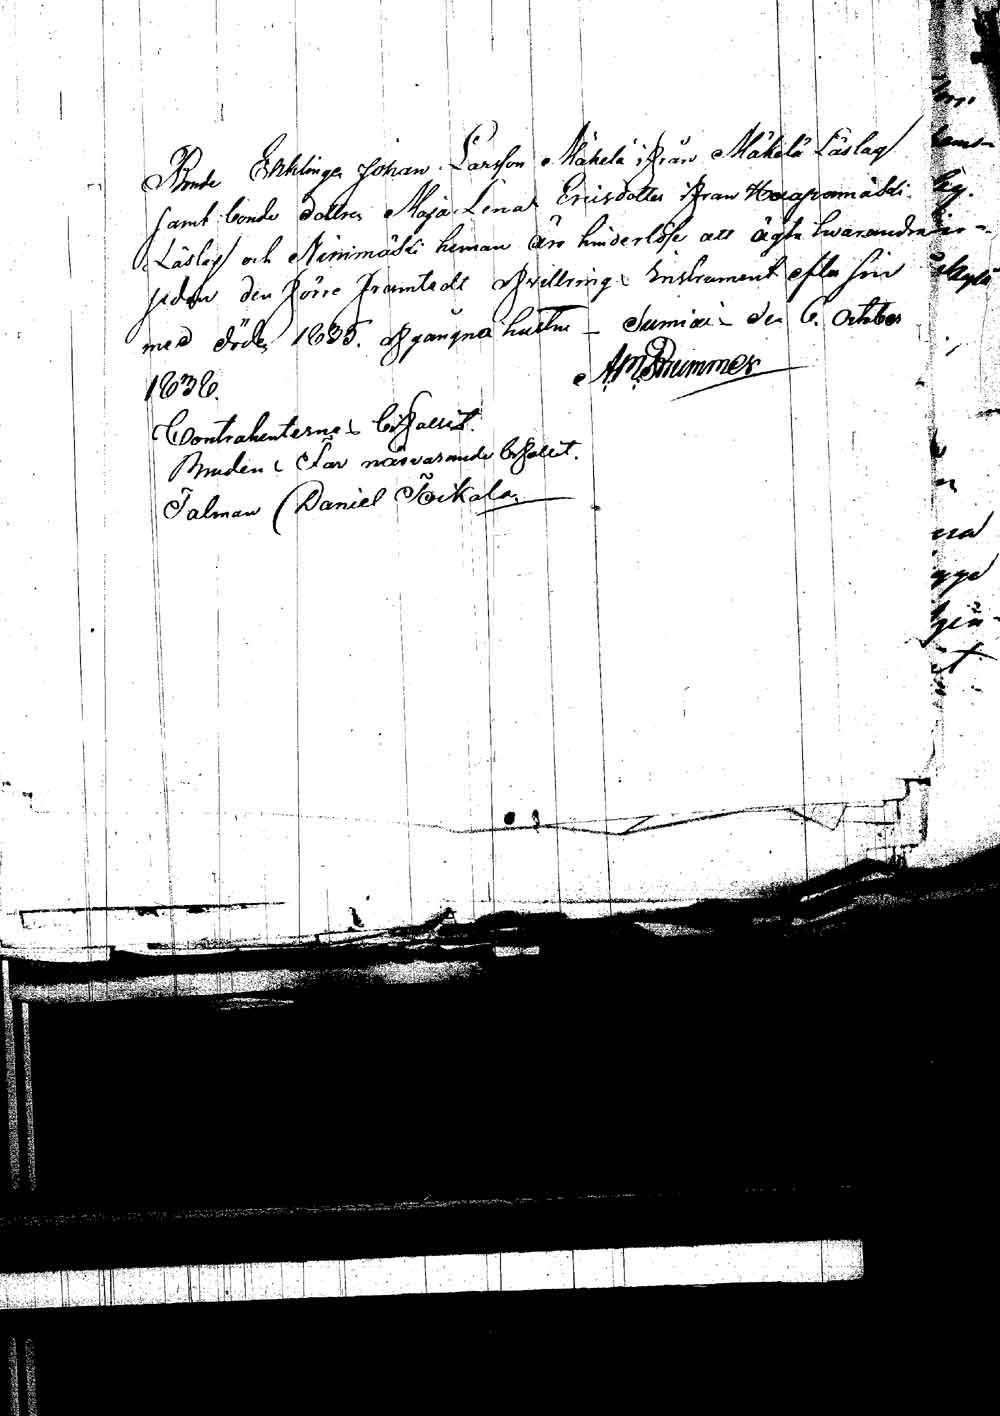 Bonde Enklinge Johan Larsson Mäkelä ifrån Mäkelä Läslag
samt bonde dottren Maja Lena Ericsdotter ifrån Haapamäki
Läslag och Niinimäki heman äro hinderlöse att ägta hwarandra
sedan den förre framtedt Afvittrings Instrument efter sin
med döden 1835. afgångna hustru – Sumiais den 6. October
1836.
A. M. Brummer
Contrahenterne bifallit.
Bruden Far närvarande bifallit.
Talman Daniel Toikala